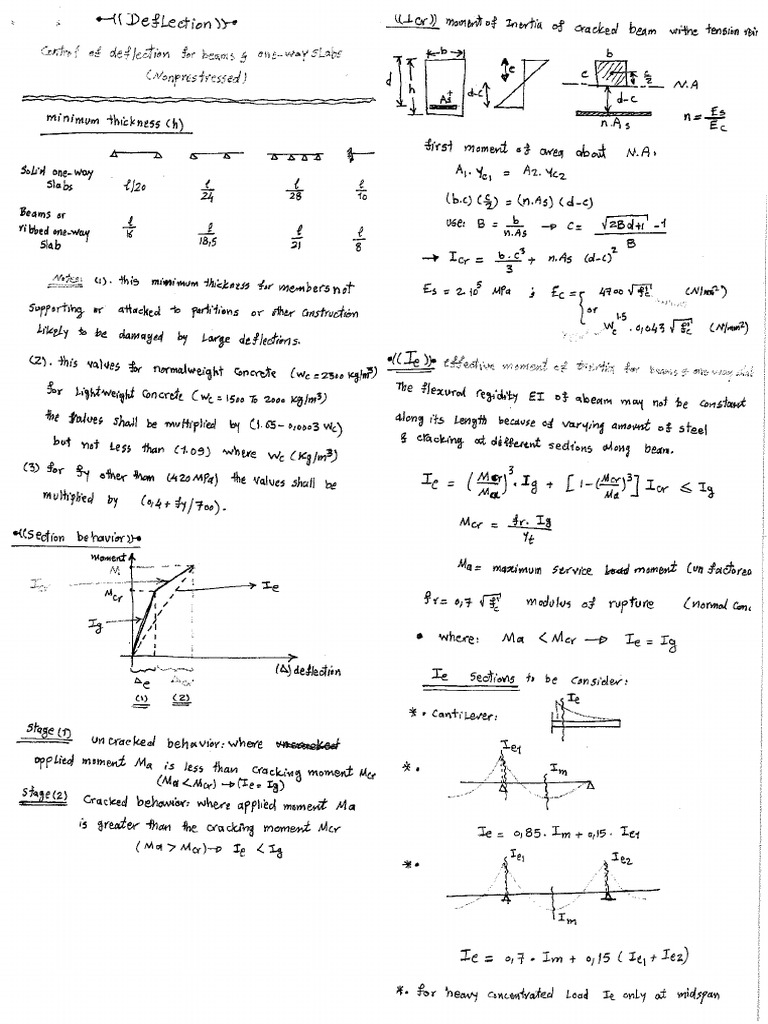 •((Deflection))•
Control of deflection for beams & one-way slabs
(Nonprestressed)
minimum thickness (h)
Solid one-way
slabs
l/20
l/24
l/28
l/10
Beams or
ribbed one-way
slab
l/16
l/18,5
l/21
l/8
Notes: (1). this minimum thickness for members not
supporting or attacked to partitions or other construction
Likely to be damaged by Large deflections.
(2). this values for normalweight concrete (Wc=2300 kg/m³)
for Lightweight concrete (Wc = 1500 To 2000 kg/m³)
the values shall be multiplied by (1.65-0,0003 Wc)
but not Less than (1.09) where Wc (Kg/m³)
(3) for fy other than (420 MPa) the values shall be
multiplied by (0,4 + fy/700).
•((Section behavior))•
moment
M
Mcr
Icr
Ig
Ie
(Δ) deflection
Δe
Δcr
(1)
(2)
Stage (1) uncracked behavior: where
applied moment Ma is less than cracking moment Mcr
(Ma < Mcr) → (Ie = Ig)
Stage (2) Cracked behavior: where applied moment Ma
is greater than the cracking moment Mcr
(Ma > Mcr) → Ie < Ig
((Icr)) moment of Inertia of cracked beam withe tension
b
d
h
As
c
d-c
b
c
c/2
N.A
d-c
n.As
n = Es/Ec
first moment of area about N.A.
A1. Yc1 = A2. Yc2
(b.c) (c/2) = (n.As) (d-c)
use: B = b/n.As → C = (√2Bd+1 -1)/B
→ Icr = b.c³/3 + n.As (d-c)²
Es = 2.10⁵ MPa ; Ec = 4700 √fc' (N/mm²)
or
Wc^1.5 . 0,043 √fc' (N/mm²)
•((Ie))• effective moment of Inertia for beams & one-way
The flexural regidity EI of abeam may not be constant
along its Length because of varying amount of steel
& cracking at different sections along beam.
Ie = (Mcr/Ma)³. Ig + [1-(Mcr/Ma)³] Icr ≤ Ig
Mcr = fr. Ig/yt
Ma = maximum service Load moment (unfactored
fr = 0,7 √fc' modulus of rupture (normal Conc
• where: Ma < Mcr → Ie = Ig
Ie Sections to be consider:
*. Cantilever:
Ie
*.
Ie1
Im
Ie = 0,85. Im + 0,15. Ie1
*.
Ie1
Ie2
Im
Ie = 0,7 . Im + 0,15 (Ie1 + Ie2)
*. for heavy concentrated Load Ie only at midspan